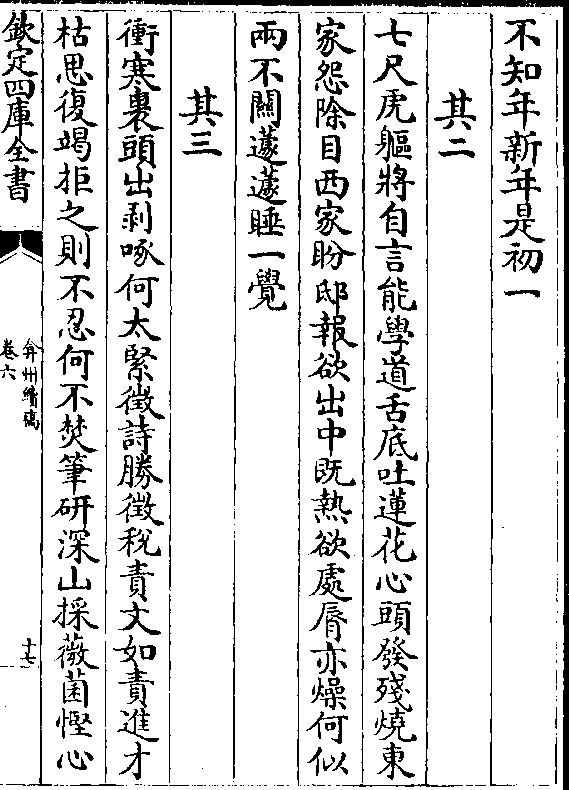 不知年新年是初一
其二
七尺虎軀將自言能學道舌底吐蓮花心頭發殘燒東
家怨除目西家盼邸報欲出中既熱欲處脣亦燥何似
兩不關蘧蘧睡一覺
其三
衝寒裹頭出剥啄何太緊徵詩勝徵稅責文如責進才
枯思復竭拒之則不忍何不焚筆研深山採薇菌慳心
欽定四庫全書
弇州續稿
卷六
十七